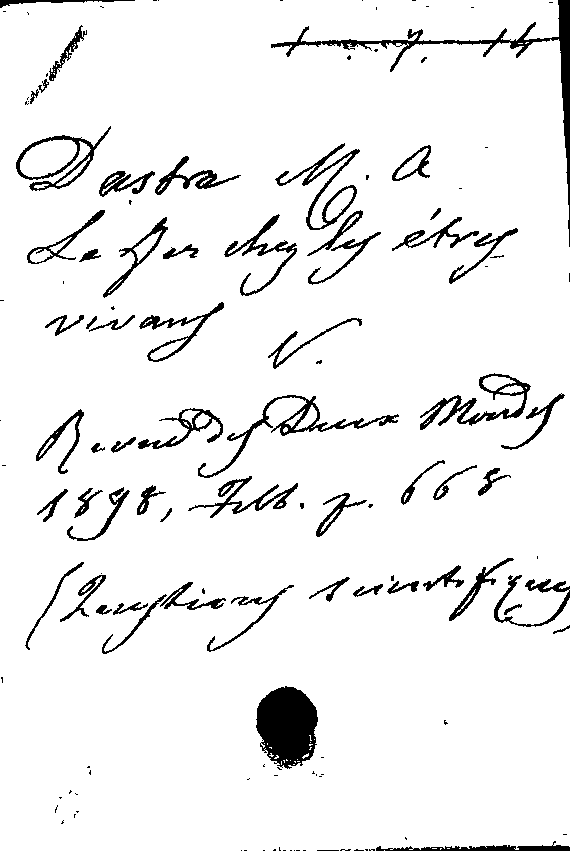 1 . 7. 14
Dastra M. A
Le Fer chez les êtres
vivans
V.
Revue des Deux Mondes
1898, Feb. p. 668
(Questions scientifiques)